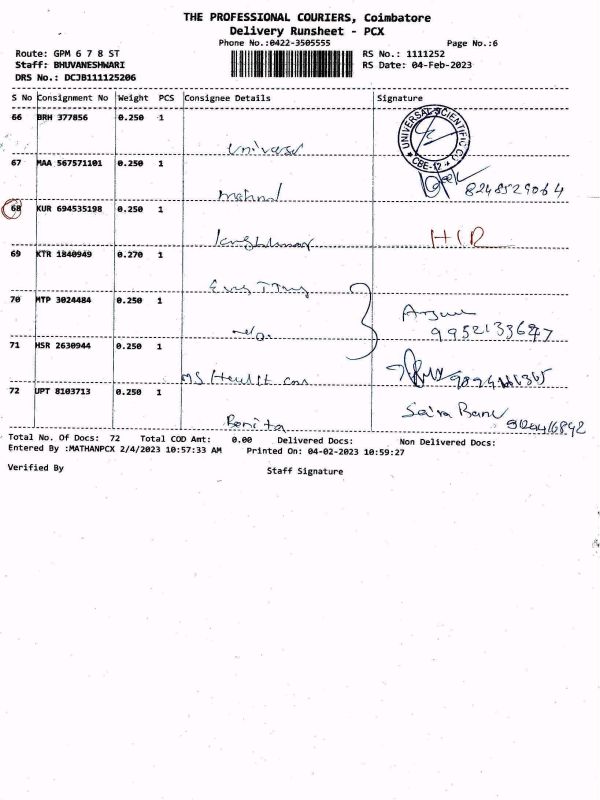 THE PROFESSIONAL COURIERS, Coimbatore
Delivery Runsheet - PCX
Phone No.:0422-3505555 Page No.:6
Route: GPM 6 7 8 ST RS No.: 1111252
Staff: BHUVANESHWARI RS Date: 04-Feb-2023
DRS No.: DCJB111125206
S No Consignment No Weight PCS Consignee Details Signature
66 BRH 377856 0.250 1
Universal
UNIVERSAL SCIENTIFIC CO
CBE-12
67 MAA 567571101 0.250 1
8248529064
68 KUR 694535198 0.250 1
HIR
69 KTR 1840949 0.270 1
70 MTP 3024484 0.250 1
9952133647
71 HSR 2630944 0.250 1
MS Health Care
72 UPT 8103713 0.250 1
Bonita Saira Banu
Total No. Of Docs: 72 Total COD Amt: 0.00 Delivered Docs: Non Delivered Docs:
Entered By :MATHANPCX 2/4/2023 10:57:33 AM Printed On: 04-02-2023 10:59:27
Verified By Staff Signature